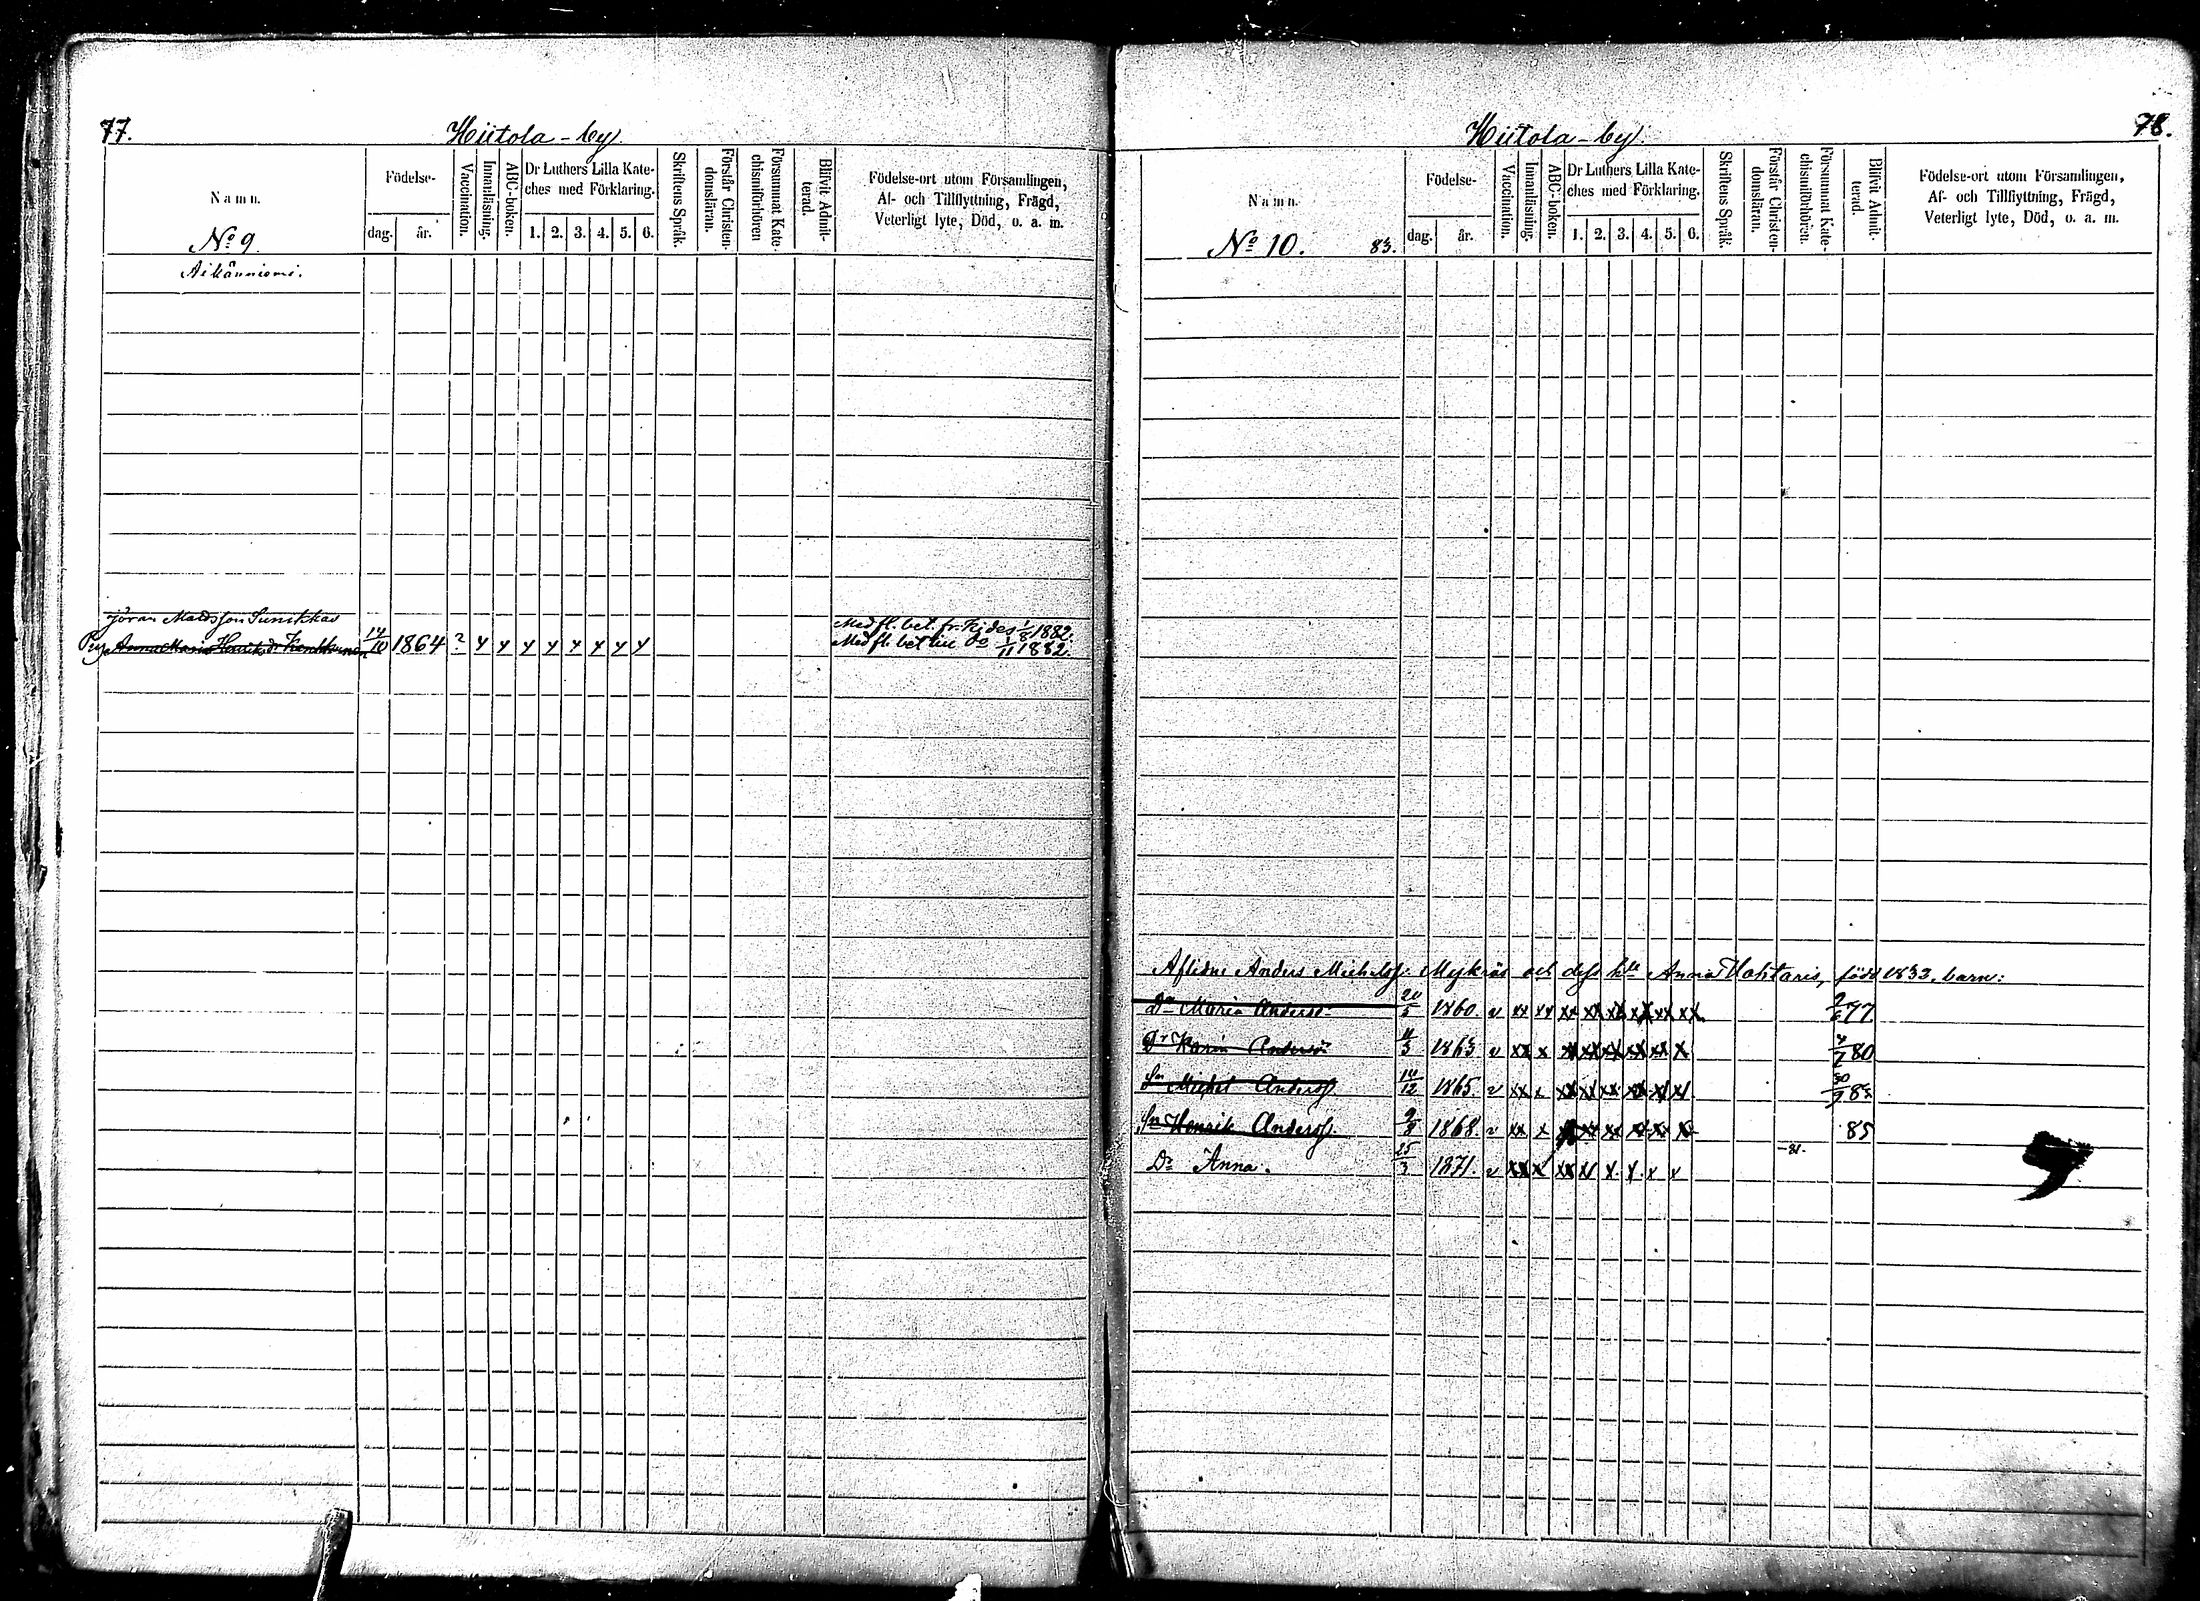 77.
Hiitola-by.
Namn.
Födelse-
dag.
år.
Vaccination.
Innanläsning.
ABC-boken.
Dr Luthers Lilla Kate-
ches med Förklaring.
1. 2. 3. 4. 5. 6.
Skriftens Språk.
Förstår Christen-
domsläran.
Försummat Kate-
chismiförhören
Blifvit Admit-
terad.
Födelse-ort utom Församlingen,
Af- och Tillflyttning, Frägd,
Veterligt lyte, Död, o. a. m.
No 9.
Aikänniemi.
Jöran Matdsson
Med fl. bet. fr. Kides 1/8 1882.
Anna Maria Henriksdr 14/10 1864 ? x x x x x x x x Med fl. bet till do 1/11 1882.
78.
Hiitola-by.
Namn.
Födelse-
dag.
år.
Vaccination.
Innanläsning.
ABC-boken.
Dr Luthers Lilla Kate-
ches med Förklaring.
1. 2. 3. 4. 5. 6.
Skriftens Språk.
Förstår Christen-
domsläran.
Försummat Kate-
chismiförhören.
Blifvit Admit-
terad.
Födelse-ort utom Församlingen,
Af- och Tillflyttning, Frägd,
Veterligt lyte, Död, o. a. m.
No 10. 83.
Aflidne Anders Michelss: Mykräs och dess h:u Anna Hohtaris, född 1833, barn:
Dr Maria Andersd. 20/5 1860. v xx xx xx xx xx xx xx xx 2/6 77
Dr Karin Andersd. 11/3 1863 v xx x xx xx xx xx xx x 4/7 80
Sn Michel Anderss. 14/12 1865. v xx x xx xx xx xx xx xx 30/9 83
Sn Henrik Anderss. 9/8 1868. v xx x xx xx xx xx x 85
-81.
Dr Anna. 25/3 1871. v xx x xx xx x x x x